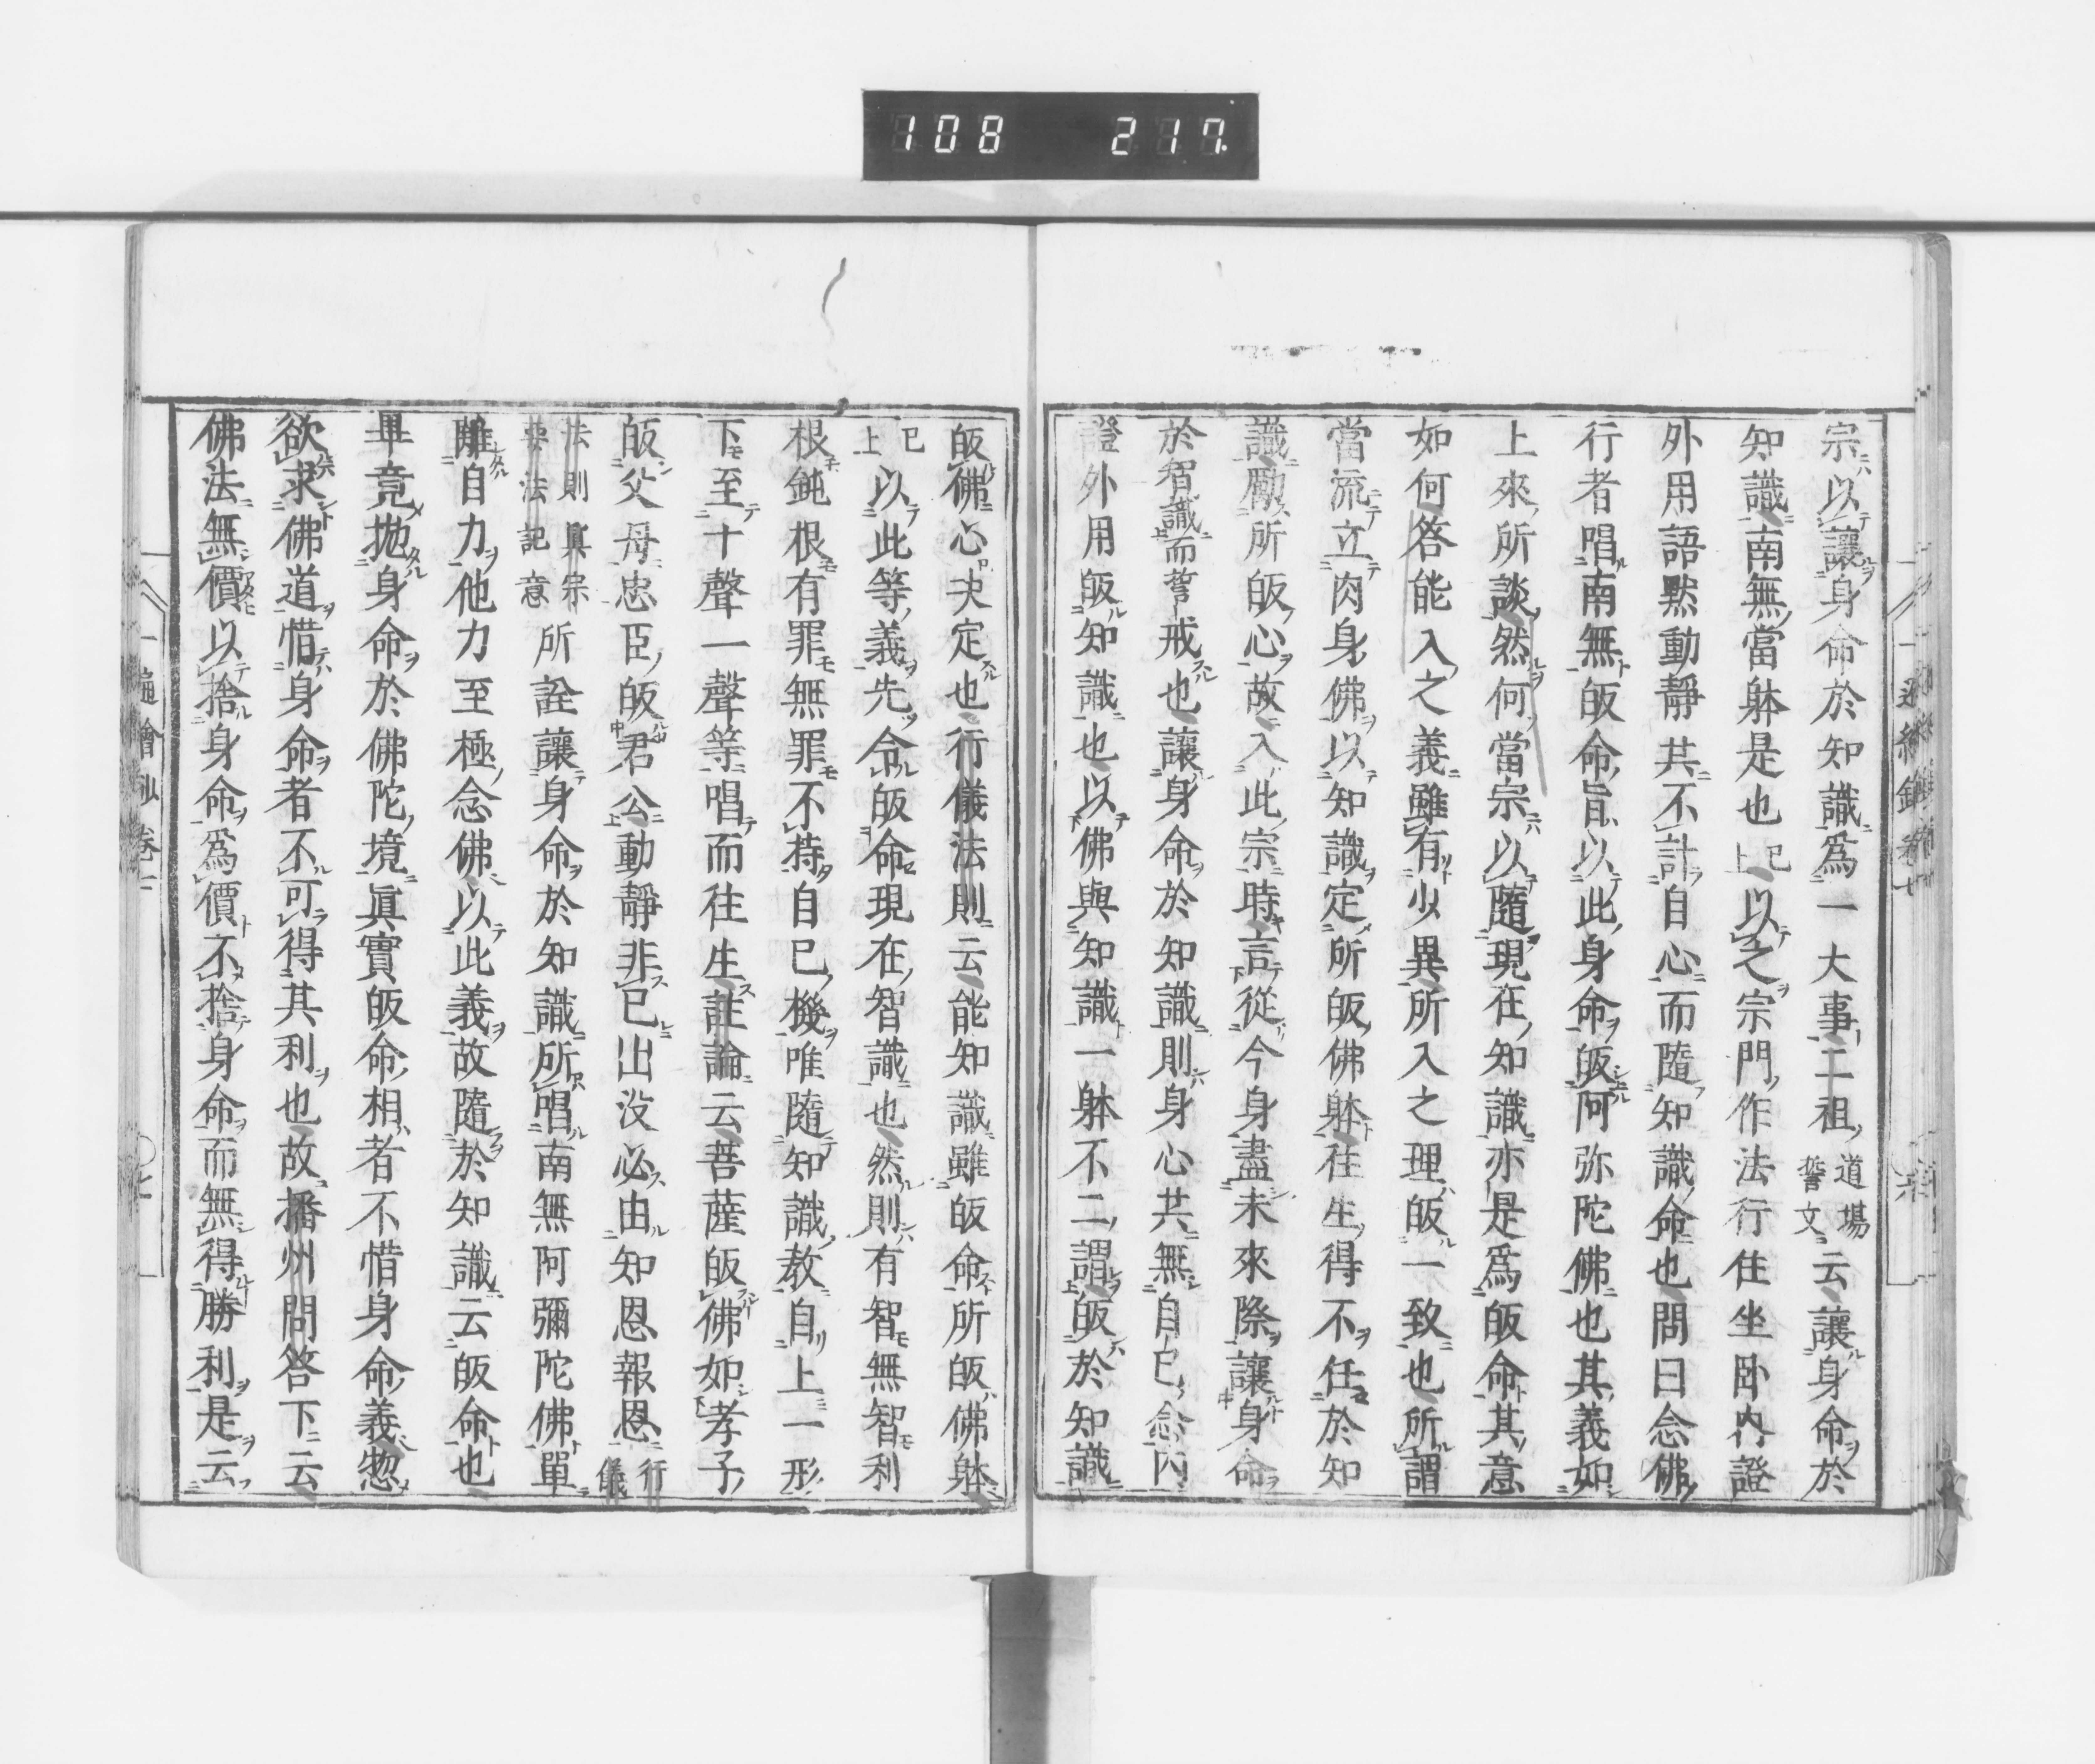 108 217
宗以讓身命於知識爲一大事二祖道場誓文云讓身命於
知識南無當躰是也已上以之宗門作法行住坐卧内證
外用語黙動靜其不計自心而隨知識命也問曰念佛
行者唱南無皈命旨以此身命皈阿弥陀佛也其義如
上來所談然何當宗以隨現在知識亦是爲皈命其意
如何答能入之義雖有少異所入之理皈一致也所謂
當流立肉身佛以知識定所皈佛躰往生得不任於知
識勵所皈心故入此宗時言從今身盡未來際讓身命
於智識而誓戒也讓身命於知識則身心共無自已念内
證外用皈知識也以佛與知識一躰不二謂皈於知識
皈佛心决定也行儀法則云能知識雖皈命所皈佛躰
已上以此等義先令皈命現在智識也然則有智無智利
根鈍根有罪無罪不持自已機唯隨知識教自上一形
下至十聲一聲等唱而往生註論云菩薩皈佛如孝子
皈父母忠臣皈君公動靜非已出沒必由知恩報恩行儀
法則眞宗要法記意所詮讓身命於知識所唱南無阿彌陀佛單
離自力他力至極念佛以此義故隨於知識云皈命也
畢竟抛身命於佛陀境眞實皈命相者不惜身命義惣
欲求佛道惜身命者不可得其利也故播州問答下云
佛法無價以捨身命爲價不捨身命而無得勝利是云
一遍繪 卷七